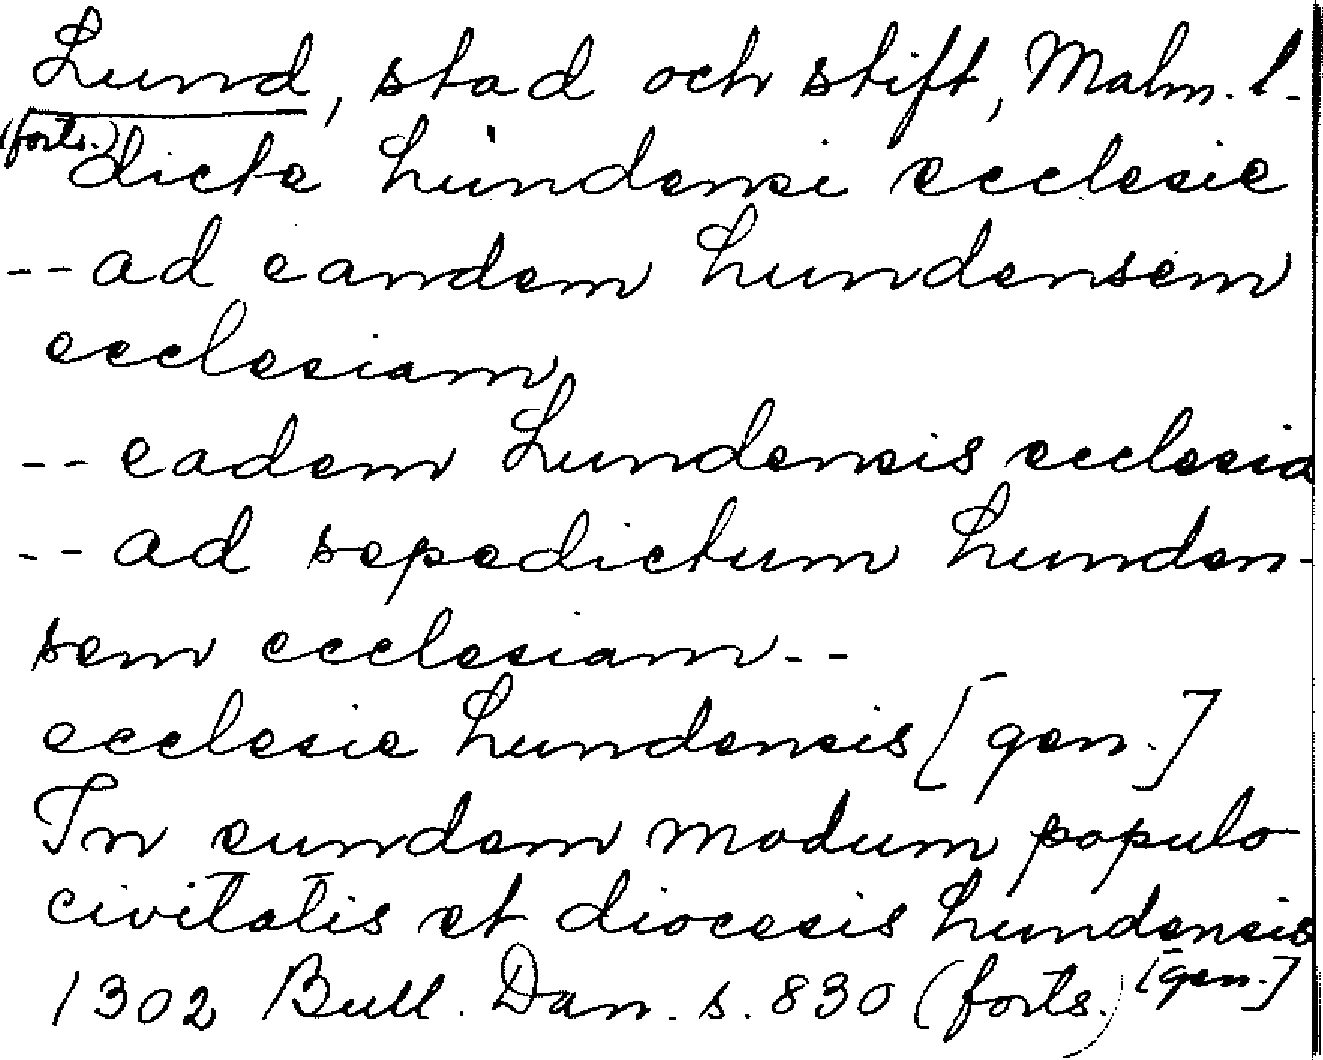 Lund, stad och stift, Malm. l.
(forts.) dicte Lundensi ecclesie
-- ad eandem Lundensem
ecclesiam
-- eadem Lundensis ecclesia
-- ad sepedictum Lunden-
sem ecclesiam --
ecclesie Lundensis [gen.]
In eundem modum populo
civitatis et diocesis Lundensis
1302 Bull. Dan. s. 830 (forts.) [gen.]